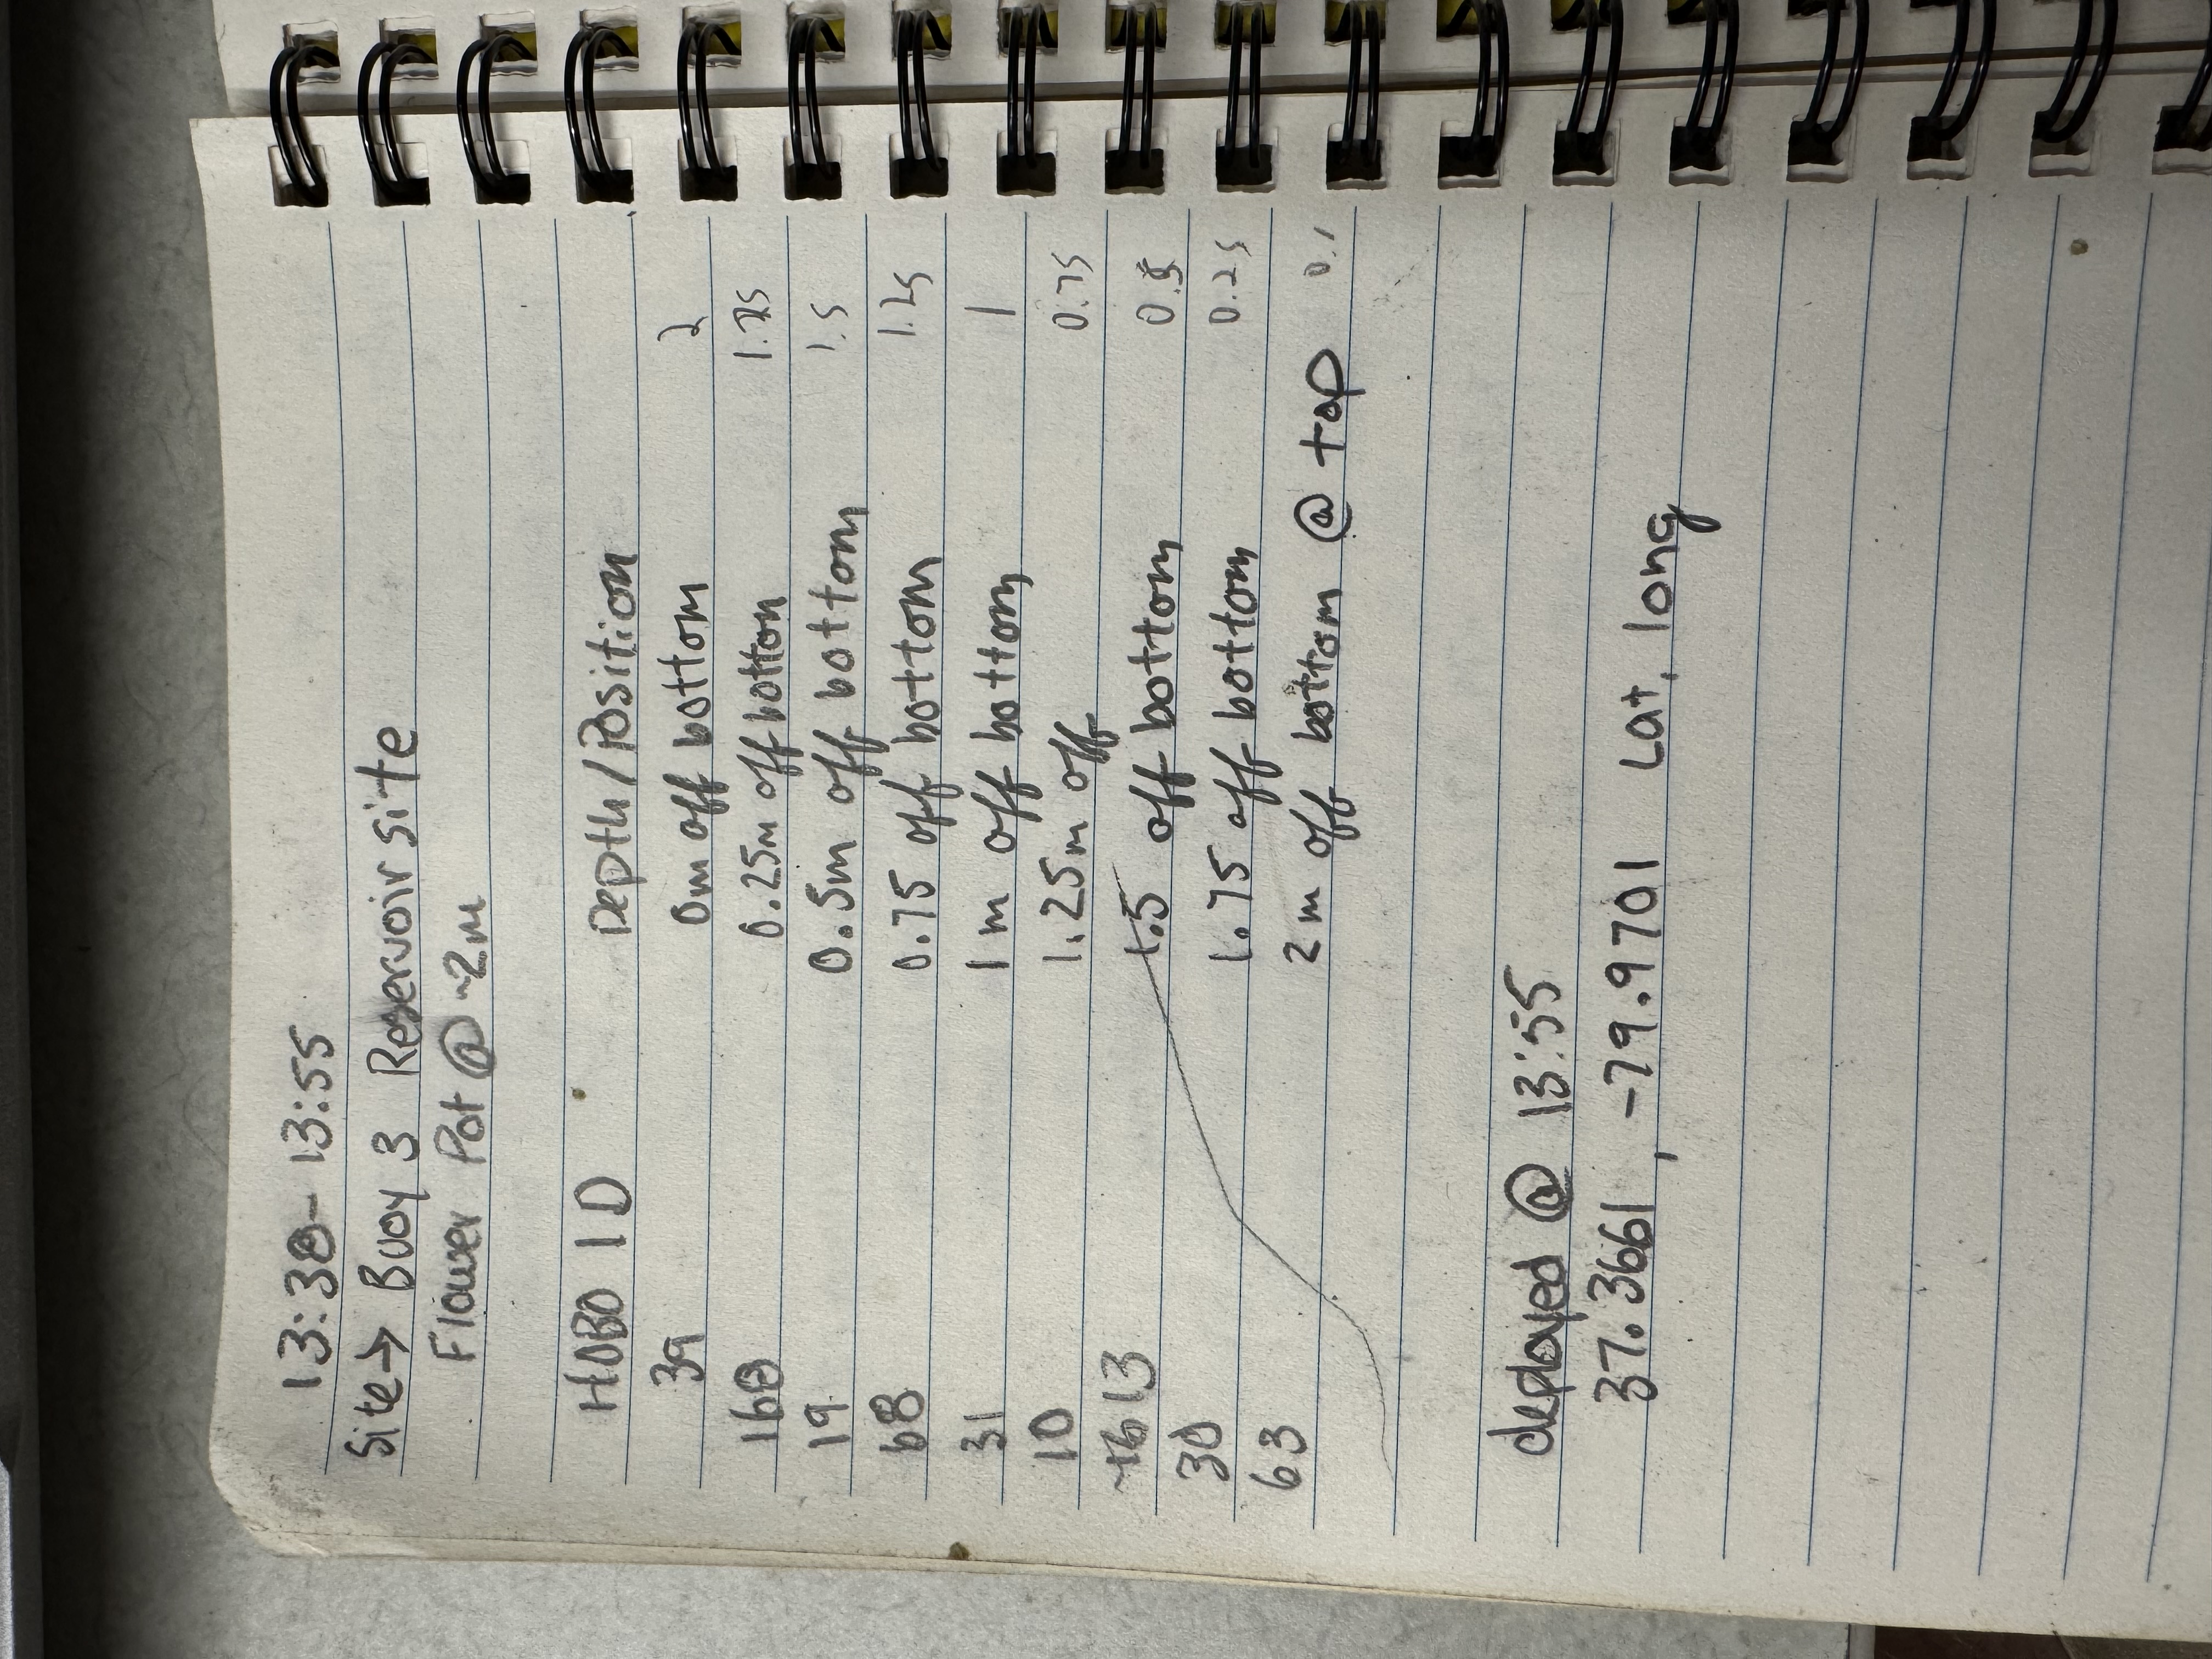 13:38- 13:55
Site→ Buoy 3 Reservoir site
Flower Pot @ ~2m
HOBO ID Depth/Position
39 0m off bottom 2
160 0.25m off botton 1.75
19 0.5m off bottom 1.5
68 0.75 off bottom 1.25
31 1 m off bottom 1
10 1.25m off 0.75
13 1.5 off bottom 0.5
30 1.75 off bottom 0.25
63 2m off bottom @ top 0.1
deployed @ 13:55
37.3661, -79.9701 Lat, long